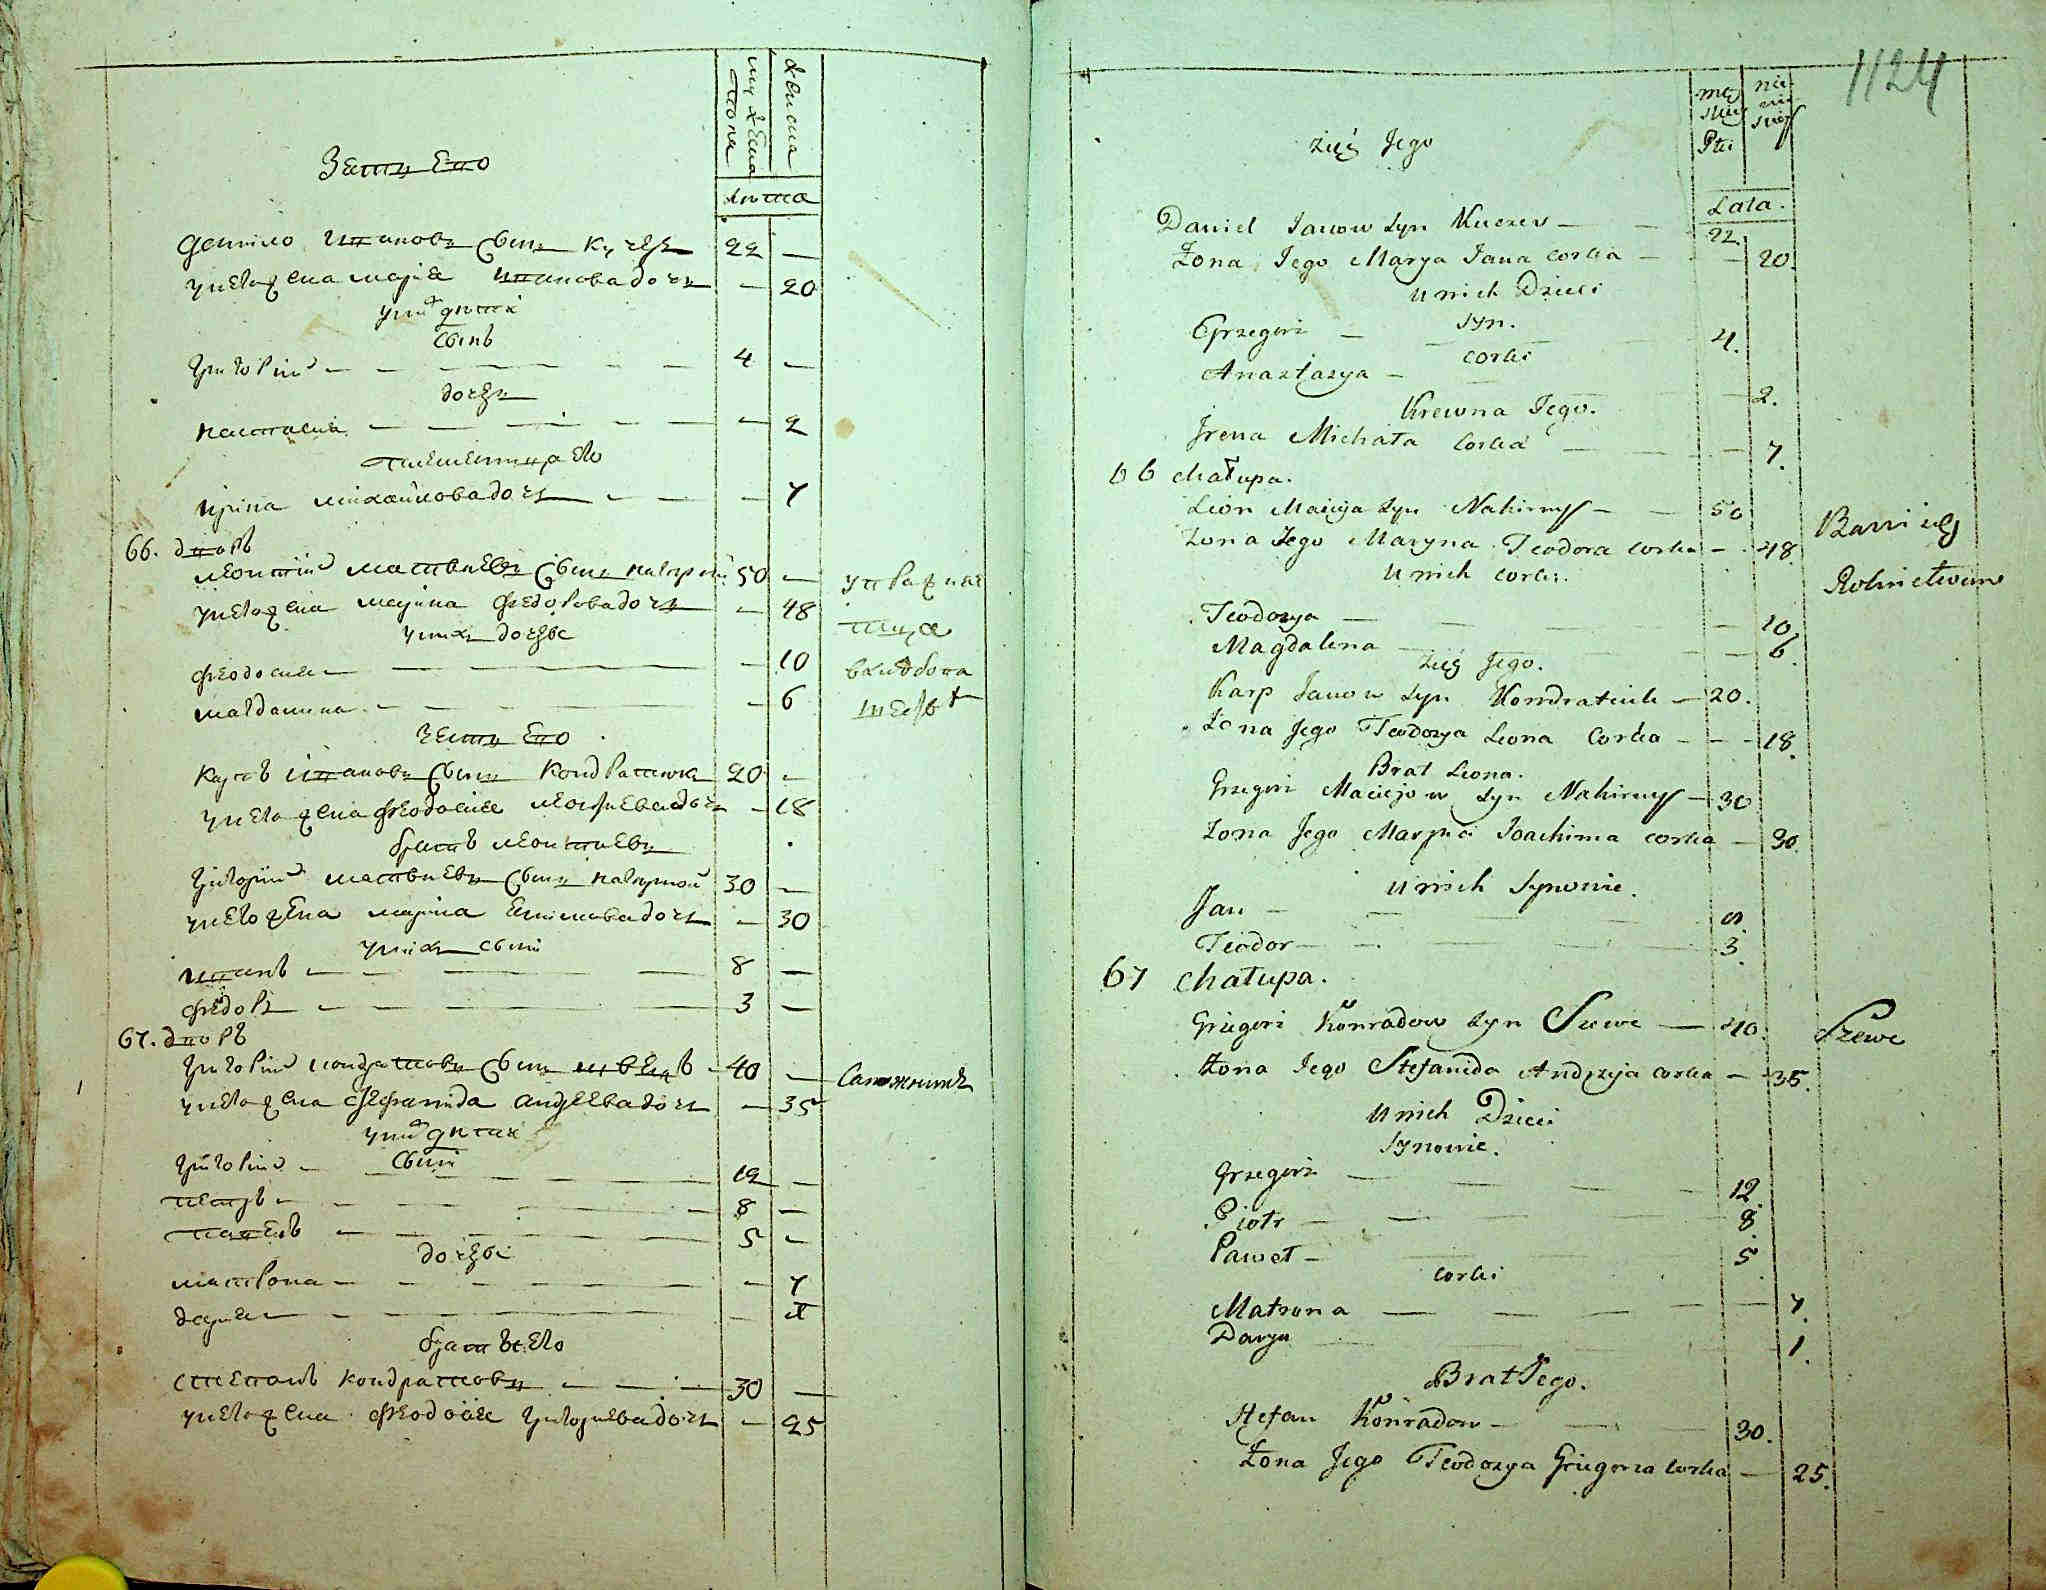 мужеска
пола
женска
лѣта
Зять Его
Данило Ивановъ Сынъ Кучеръ 22 —
у него жена Марiя Ивановадочь — 20
у них дѣтей
Сынъ
Григорiй — 4 —
дочери
Настасiя — 2
племенница его
Ирина Михайловадочь — 7
66. дворъ
Леонтiй Матвѣевъ Сынъ Нагирный 50 —
у него жена Марина Федоровадочь — 48
у них дочери
Феодосия — 10
Магдалина — 6
Зять Его
Карпъ Ивановъ Сынъ Кондратюкъ 20 —
у него жена Феодосия Леонтиевадочь — 18
братъ Леонтиевъ
Григорiй Матвѣевъ Сынъ Нагирной 30 —
у него жена Марина Екимовадочь — 30
у них Сыни
Иванъ — 8 —
Федоръ — 3 —
67. дворъ
Григорiй Кондратовъ Сынъ Швецъ 40 —
Сапожникъ
у него жена Стефанида Андреевадочь — 35
у них дѣтей
Сыни
Григорiй — 12 —
Петръ — 8 —
Павелъ — 5 —
дочери
Матрона — 7
Дария — 1
братъ его
Степанъ Кондратовъ — 30 —
у него жена Феодосия Григориевадочь — 25
1124
męz
skiej
Płci
Lata.
Zięć Jego
Daniel Janow Syn Kuczer — 22.
Żona Jego Marya Jana corka — 20.
U nich Dzieci
Syn.
Grzegorz — 4.
corki
Anastazya — 2.
Krewna Jego.
Jrena Michała Corka — 7.
66 chałupa.
Leon Macieja Syn Nahirny — 50
Żona Jego Maryna Teodora corka — 48.
Rolnictwem
U nich corki.
Teodozya — 10
Magdalena — 6.
Zięć Jego.
Karp Janow Syn Kondratiuk — 20.
Żona Jego Teodozya Leona Corka — 18.
Brat Leona.
Grzegorz Maciejow Syn Nahirny — 30
Żona Jego Maryna Joachima corka — 30.
U nich Synowie.
Jan — 8.
Teodor — 3.
67 chałupa.
Grzegorz Konradow Syn Szewc — 40.
Szewc
Żona Jego Stefanida Andrzeja corka — 35.
U nich Dzieci
Synowie.
Grzegorz — 12.
Piotr — 8.
Paweł — 5
corki
Matrona — 7.
Darya — 1.
Brat Jego.
Stefan Konradow — 30.
Żona Jego Teodozya Grzegorza corka — 25.